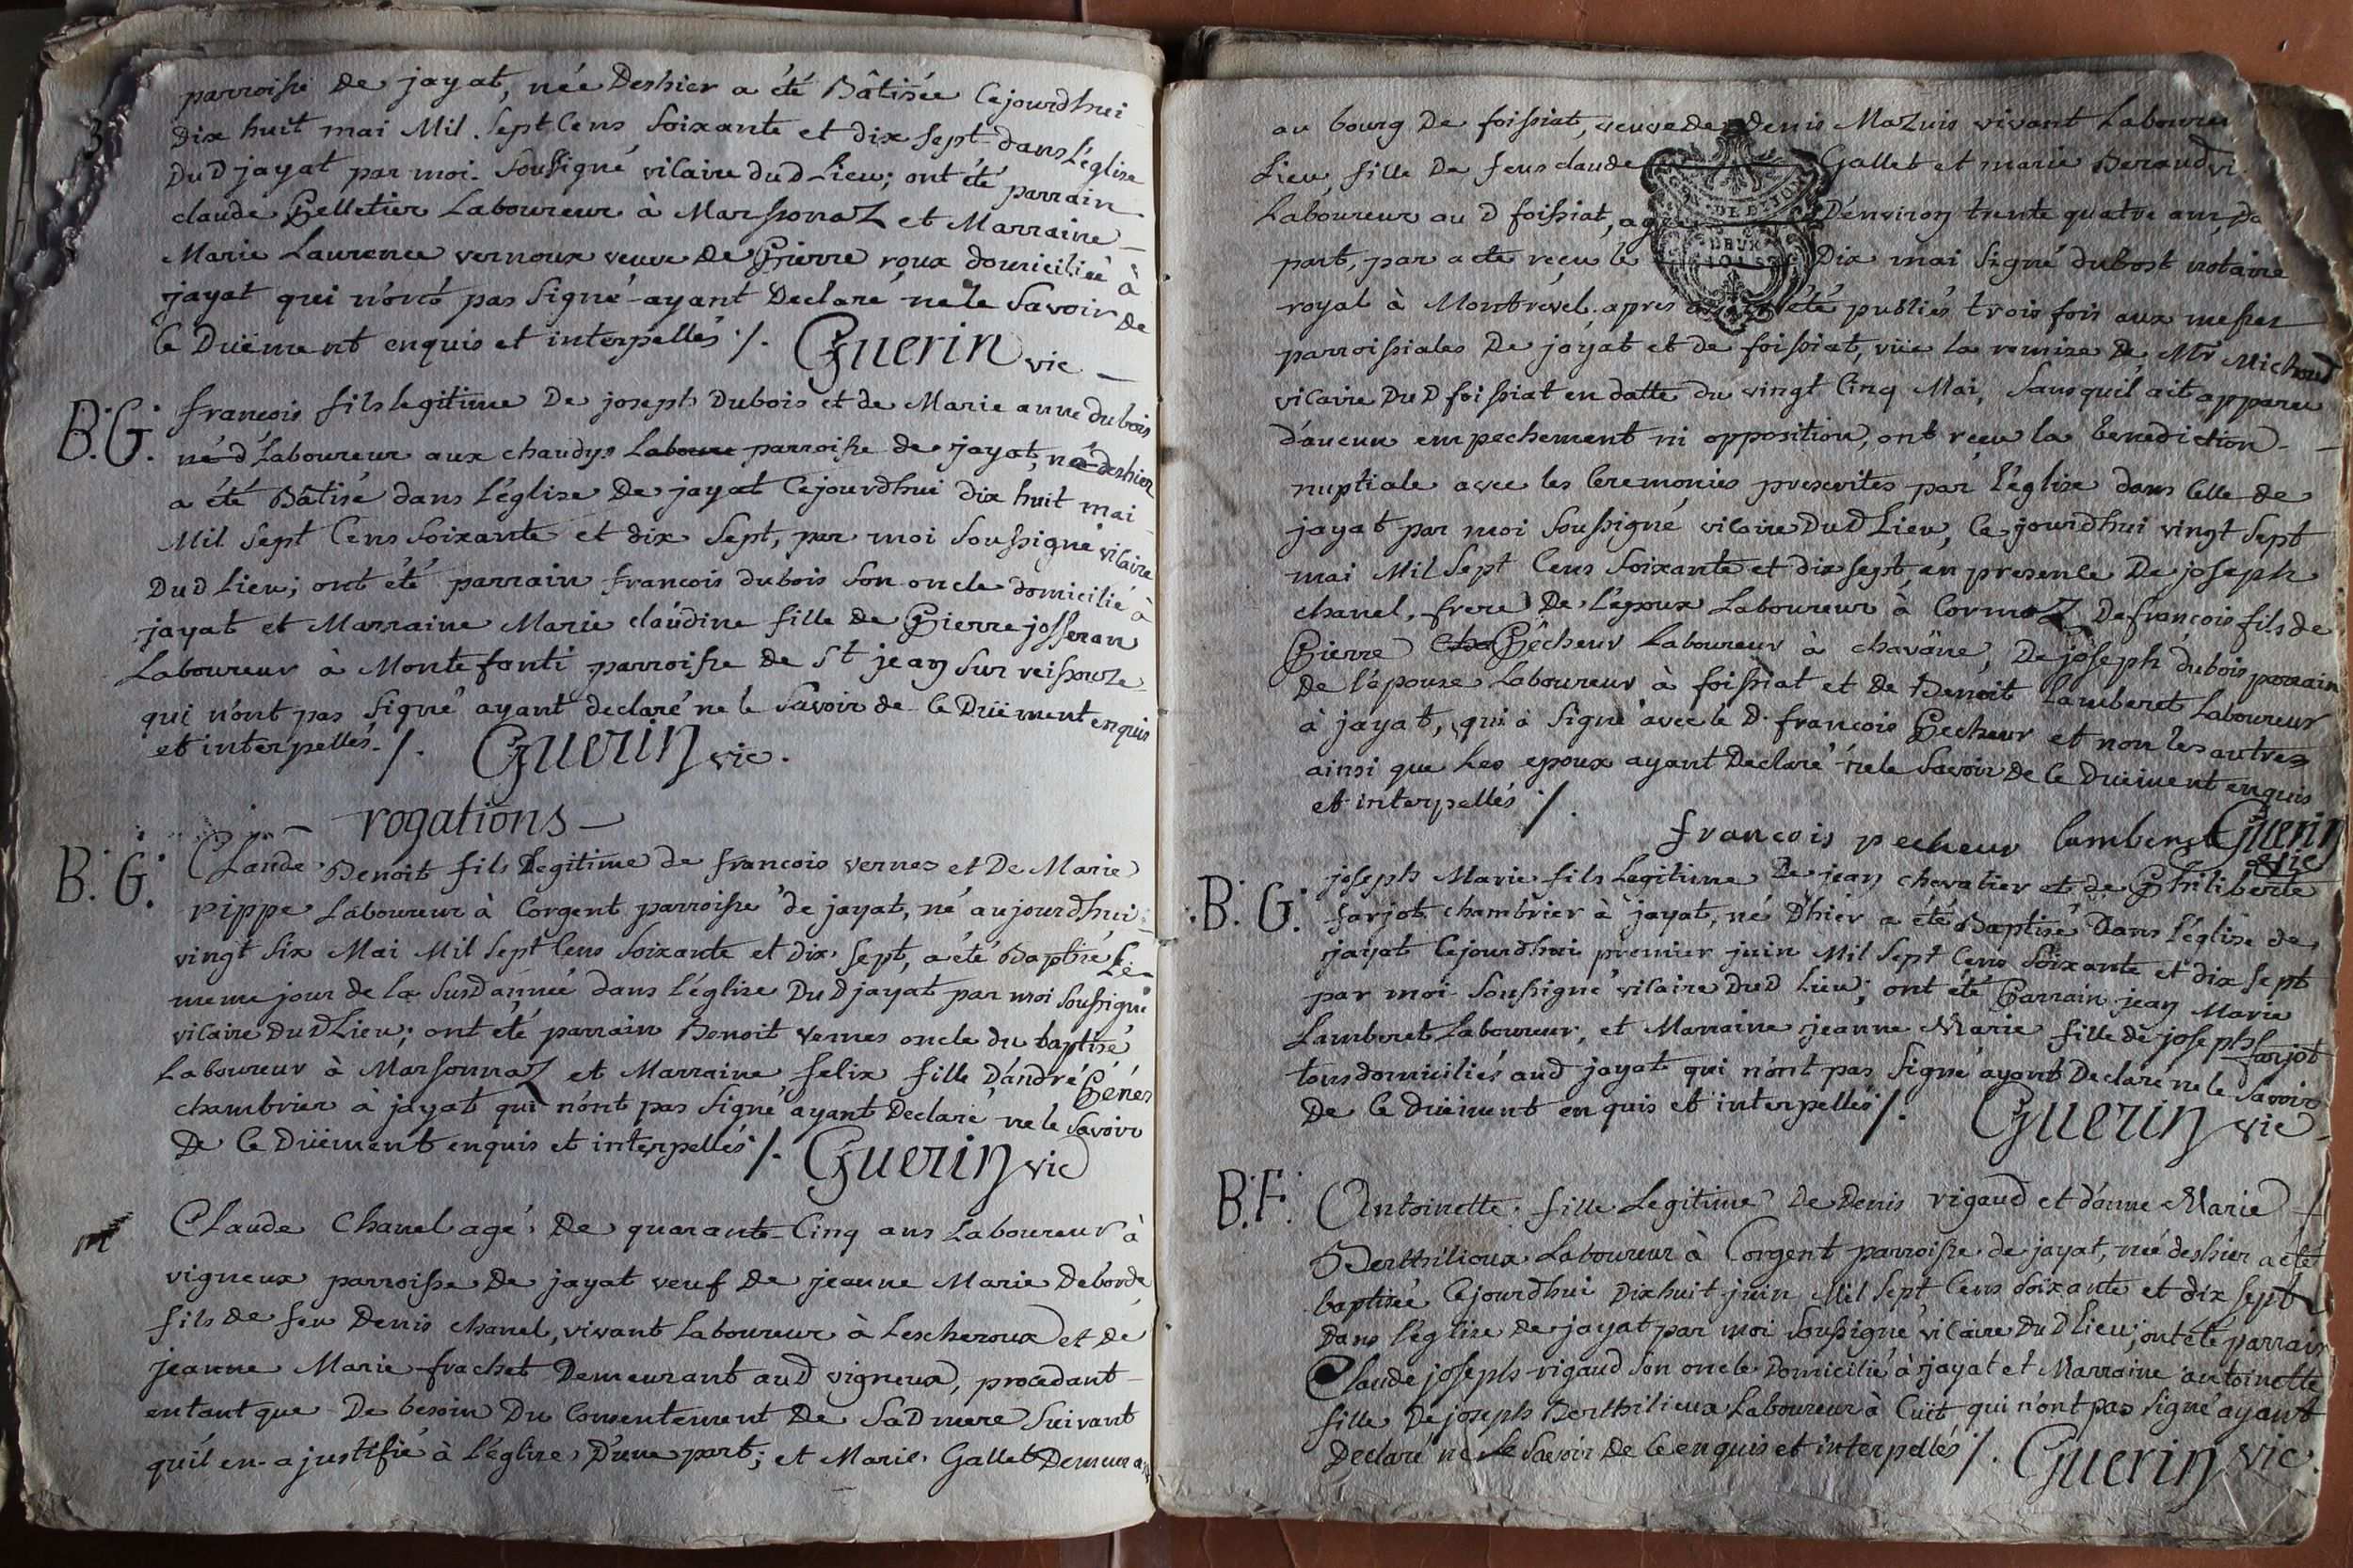 3
parroisse De jayat, née Deshier a été Bâtisée Cejourdhui
dix huit mai Mil Sept Cens soixante et dix sept dans l'église
DuD jayat par moi soussigné vicaire duD Lieu; ont été parrain
claude Pelletier Laboureur à MarssonaZ et Marraine
Marie Laurence vernoux veuve De Pierre roux domiciliée à
jayat qui n'ont pas signé ayant Declaré ne le Savoir de
Ce Duëment enquis et interpellés ./. Guerin vic
B.G. francois fils legitime De joseph Dubois et de Marie anne dubois
né d Laboureur aux chaudys Laboure parroisse de jayat, né deshier
a été Bâtisé dans l'église De jayat Cejourdhui dix huit mai
Mil Sept Cens Soixante et dix Sept, par moi Soussigné vicaire
DuD Lieu; ont été parrain francois dubois Son oncle domicilié à
jayat et Marraine Marie claûdine fille de Pierre josseran
Laboureur à Montefanti parroisse de St jean sur reissouze
qui n'ont pas signé ayant declaré ne le Savoir de Ce Duëment enquis
et interpellés ./. Guerin vic.
rogations
B.G. Claude Benoit fils Legitime de francois vernes et De Marie
rippe Laboureur à Corgent parroisse de jayat, né aujourdhui
vingt six Mai Mil Sept Cens Soixante et Dix Sept, a été Baptisé Le
meme jour de la SusD année dans l'église DuD jayat par moi Soussigné
vicaire DuD Lieu; ont été parrain Benoit vernes oncle du baptisé
Laboureur à MarsonnaZ et Marraine felix fille D'andré Génés
chambrier à jayat qui n'ont pas Signé ayant Declaré ne le Savoir
De Ce Duëment enquis et interpellés ./. Guerin vic
m Claude Chanel agé De quarante Cinq ans Laboureur à
vigneux parroisse De jayat veuf de jeanne Marie Deborde
fils de feu Denis chanel, vivant Laboureur à Lescheroux et de
jeanne Marie frachet Demeurant auD vigneux, procedant
entant que De bésoin Du Consentement De SaD mere Suivant
qu'il en a justifié à l'église D'une part; et Marie Gallet Demeurant
au bourg De foissiat, veuve de Denis MaZuis vivant Laboureur
Lieu, fille De feus claude Gallet et marie Beraud
Laboureur au D foissiat, agée D'environ trente quatre ans
part, par acte reçu le Dix mai Signé dubost notaire
royal à Montrevel. aprés été publiés trois fois aux messes
parroissiales De jayat et de foissiat, vüe la remise De Mr Michoud
vicaire DuD foissiat en datte du vingt Cinq Mai, Sans qu'il ait apparu
d'aucun empechement ni opposition, ont reçu la benediction
nuptiale avec les Ceremonies prescrites par l'église dans Celle de
jayat par moi Soussigné vicaire DuD Lieu, Cejourdhui vingt Sept
mai Mil Sept Cens Soixante et dix sept, en presence De joseph
chanel frere De l'epoux Laboureur à CormoZ, De francois fils de
Pierre cha Pêcheur Laboureur à chavâne, De joseph dubois parrain
De l'épouse Laboureur à foissiat et de Benoit Lamberet Laboureur
à jayat, qui a Signé avec le D. francois Pecheur et non les autres
ainsi que Les epoux ayant Declaré ne le Savoir De Ce Duëment enquis
et interpellés ./.
francois pecheur lamberet Guerin
vic
B.G. joseph Marie fils Legitime De jean chevalier et de Philiberte
farjot chambrier à jayat, né D'hier a été Baptisé Dans l'église de
jayat Cejourdhui premier juin Mil Sept Cens Soixante et dix sept
par moi Soussigné vicaire DuD Lieu; ont été Parrain jean Marie
Lamberet Laboureur, et Marraine jeanne Marie fille de joseph farjot
tous domiciliés auD jayat qui n'ont pas Signé ayant Declaré ne le Savoir
De Ce duëment enquis et interpellés ./. Guerin vic
B.F. Antoinette fille Legitime De Denis rigaud et d'anne Marie
Berthilioux Laboureur à Corgent parroisse de jayat, née deshier a été
baptisée Cejourdhui Dix huit juin Mil Sept Cens Soixante et dix Sept
Dans l'église de jayat par moi Soussigné vicaire DuD Lieu; ont été parrain
Claude joseph rigaud Son oncle Domicilié à jayat et Marraine antoinette
fille De joseph Berthilieux Laboureur à Cuët qui n'ont pas Signé ayant
Declaré ne le Savoir De Ce enquis et interpellés ./. Guerin vic.